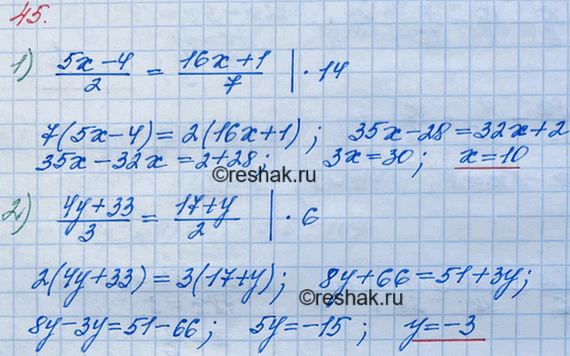 45.
1) (5x-4)/2 = (16x+1)/7 | · 14
7(5x-4)=2(16x+1); 35x-28=32x+2
35x-32x=2+28; 3x=30; x=10
©reshak.ru
2) (4y+33)/3 = (17+y)/2 | · 6
2(4y+33)=3(17+y); 8y+66=51+3y;
©reshak.ru
8y-3y=51-66; 5y=-15; y=-3